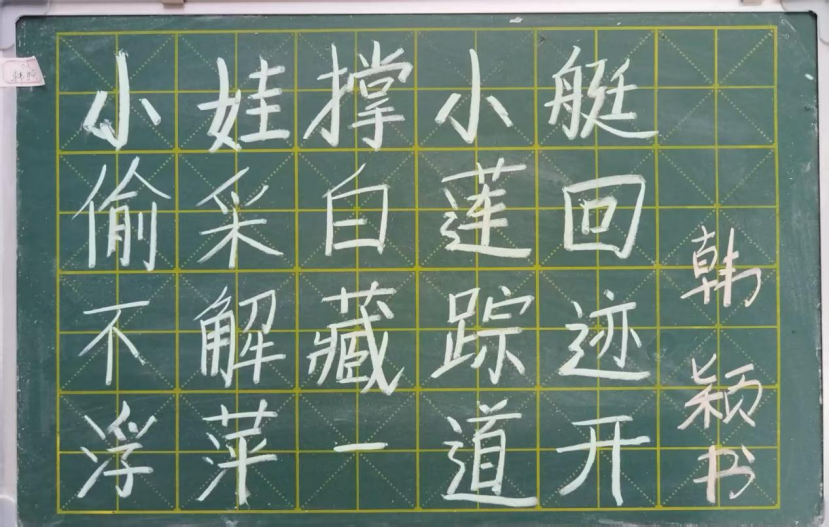 小娃撑小艇
偷采白莲回
不解藏踪迹
浮萍一道开
韩颖书